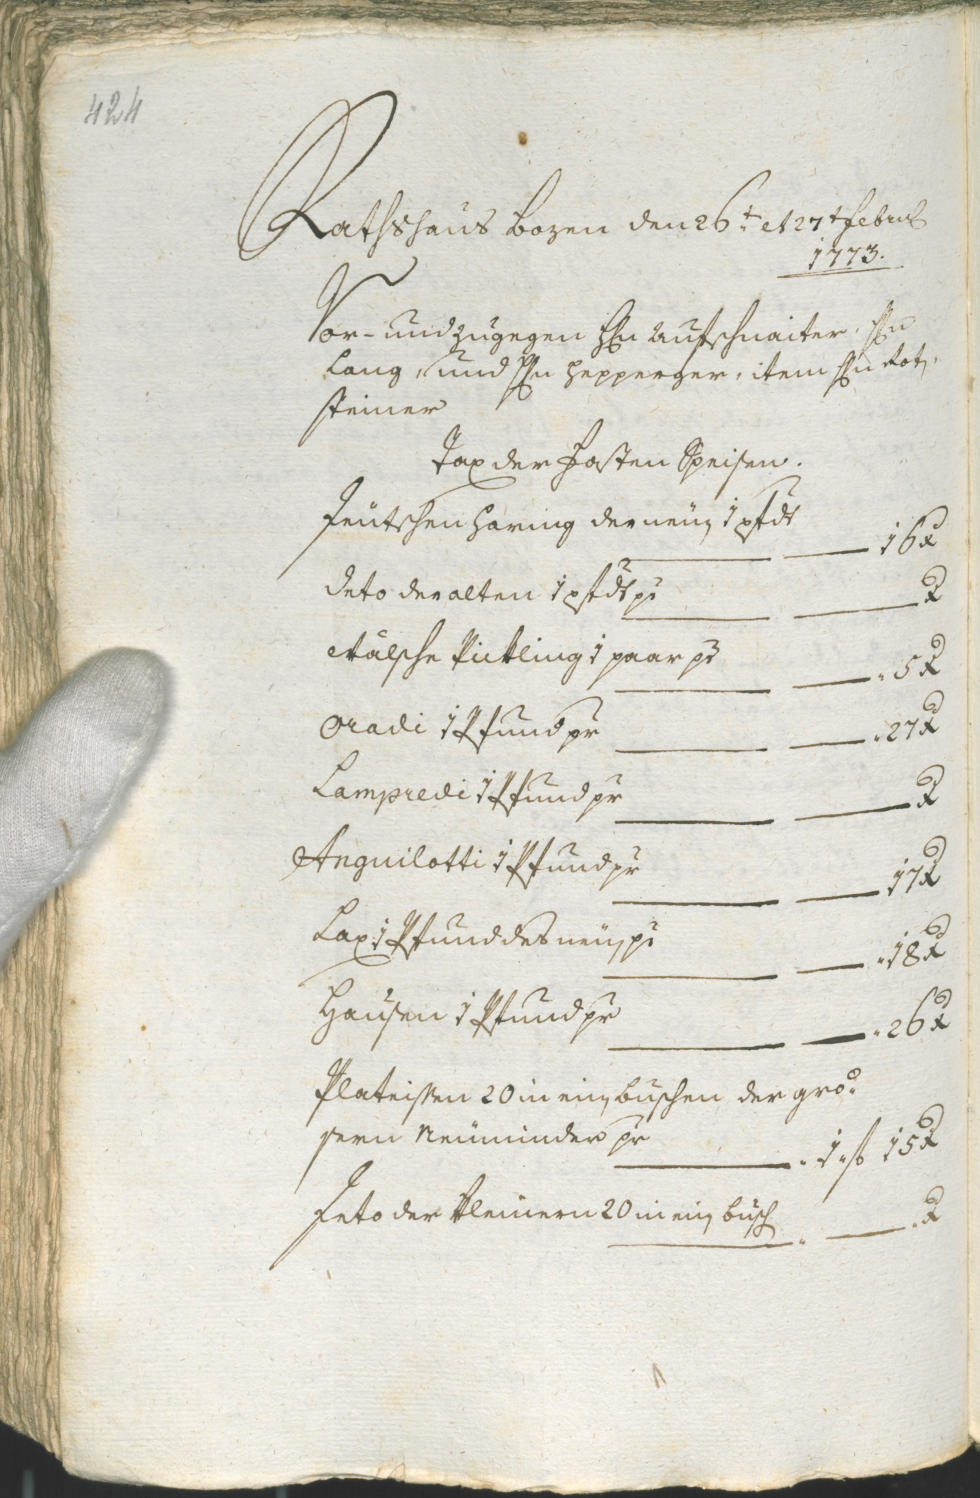 424
Rathshaus Bozen den 26t. et 27t Febru
1773.
Vor- und zugegen Hln Aufschnaiter, Hln
Lang, und Hln Hepperger, item Hln Rot,
steiner
Tax der Fasten Speisen.
Häring der neüen 1 pfdt
16 x
deto der alten 1 pfdt pr
x
Pickling 1 paar pr
5 x
Oradi 1 Pfund pr
27 x
Lampredi 1 Pfund pr
x
Anguilotti 1 Pfund pr
17 x
Lax 1 Pfund des neüen pr
18 x
Hausen 1 Pfund pr
26 x
Plateissen 20 in ein buschen der gro=
sern pr
1 f 15 x
deto der kleinern 20 in ein busch
x